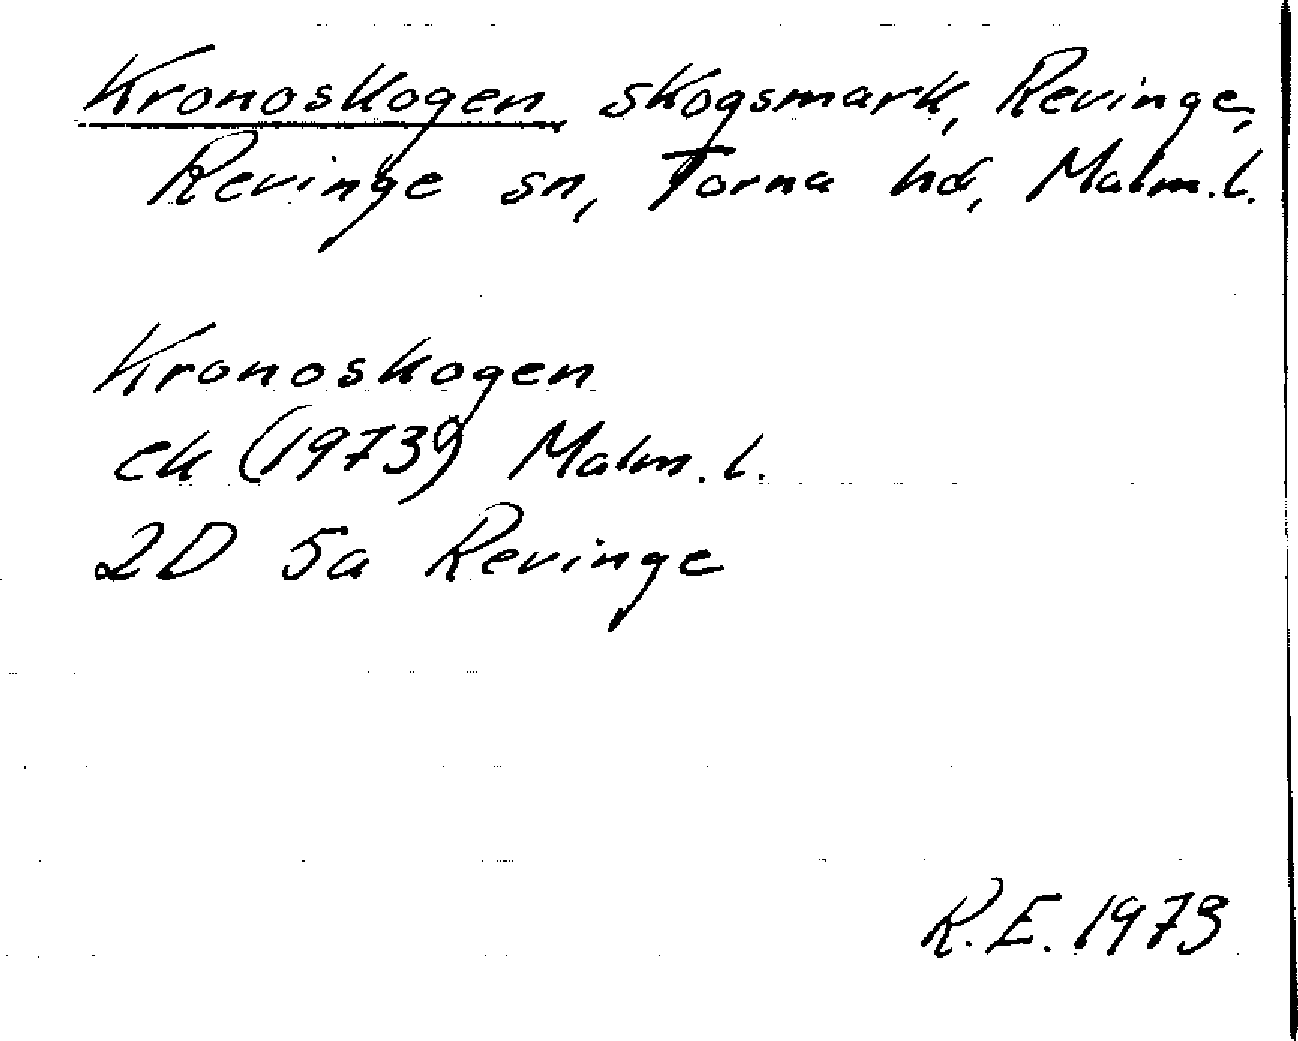 Kronoskogen skogsmark, Revinge,
Revinge sn, Torna hd, Malm. l.
Kronoskogen
ek (1973) Malm. l.
2D 5a Revinge
R.E. 1973